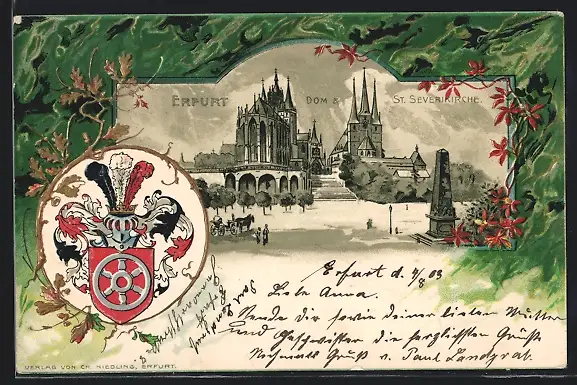 ERFURT DOM & ST. SEVERIKIRCHE.
Erfurt d. 4/8 03
Liebe Anna.
Sende Dir sowie Deiner lieben Mutter
und Geschwister die herzlichsten Grüße
Nochmals Gruß v. Paul Landgraf
VERLAG VON CH. NIEDLING, ERFURT.